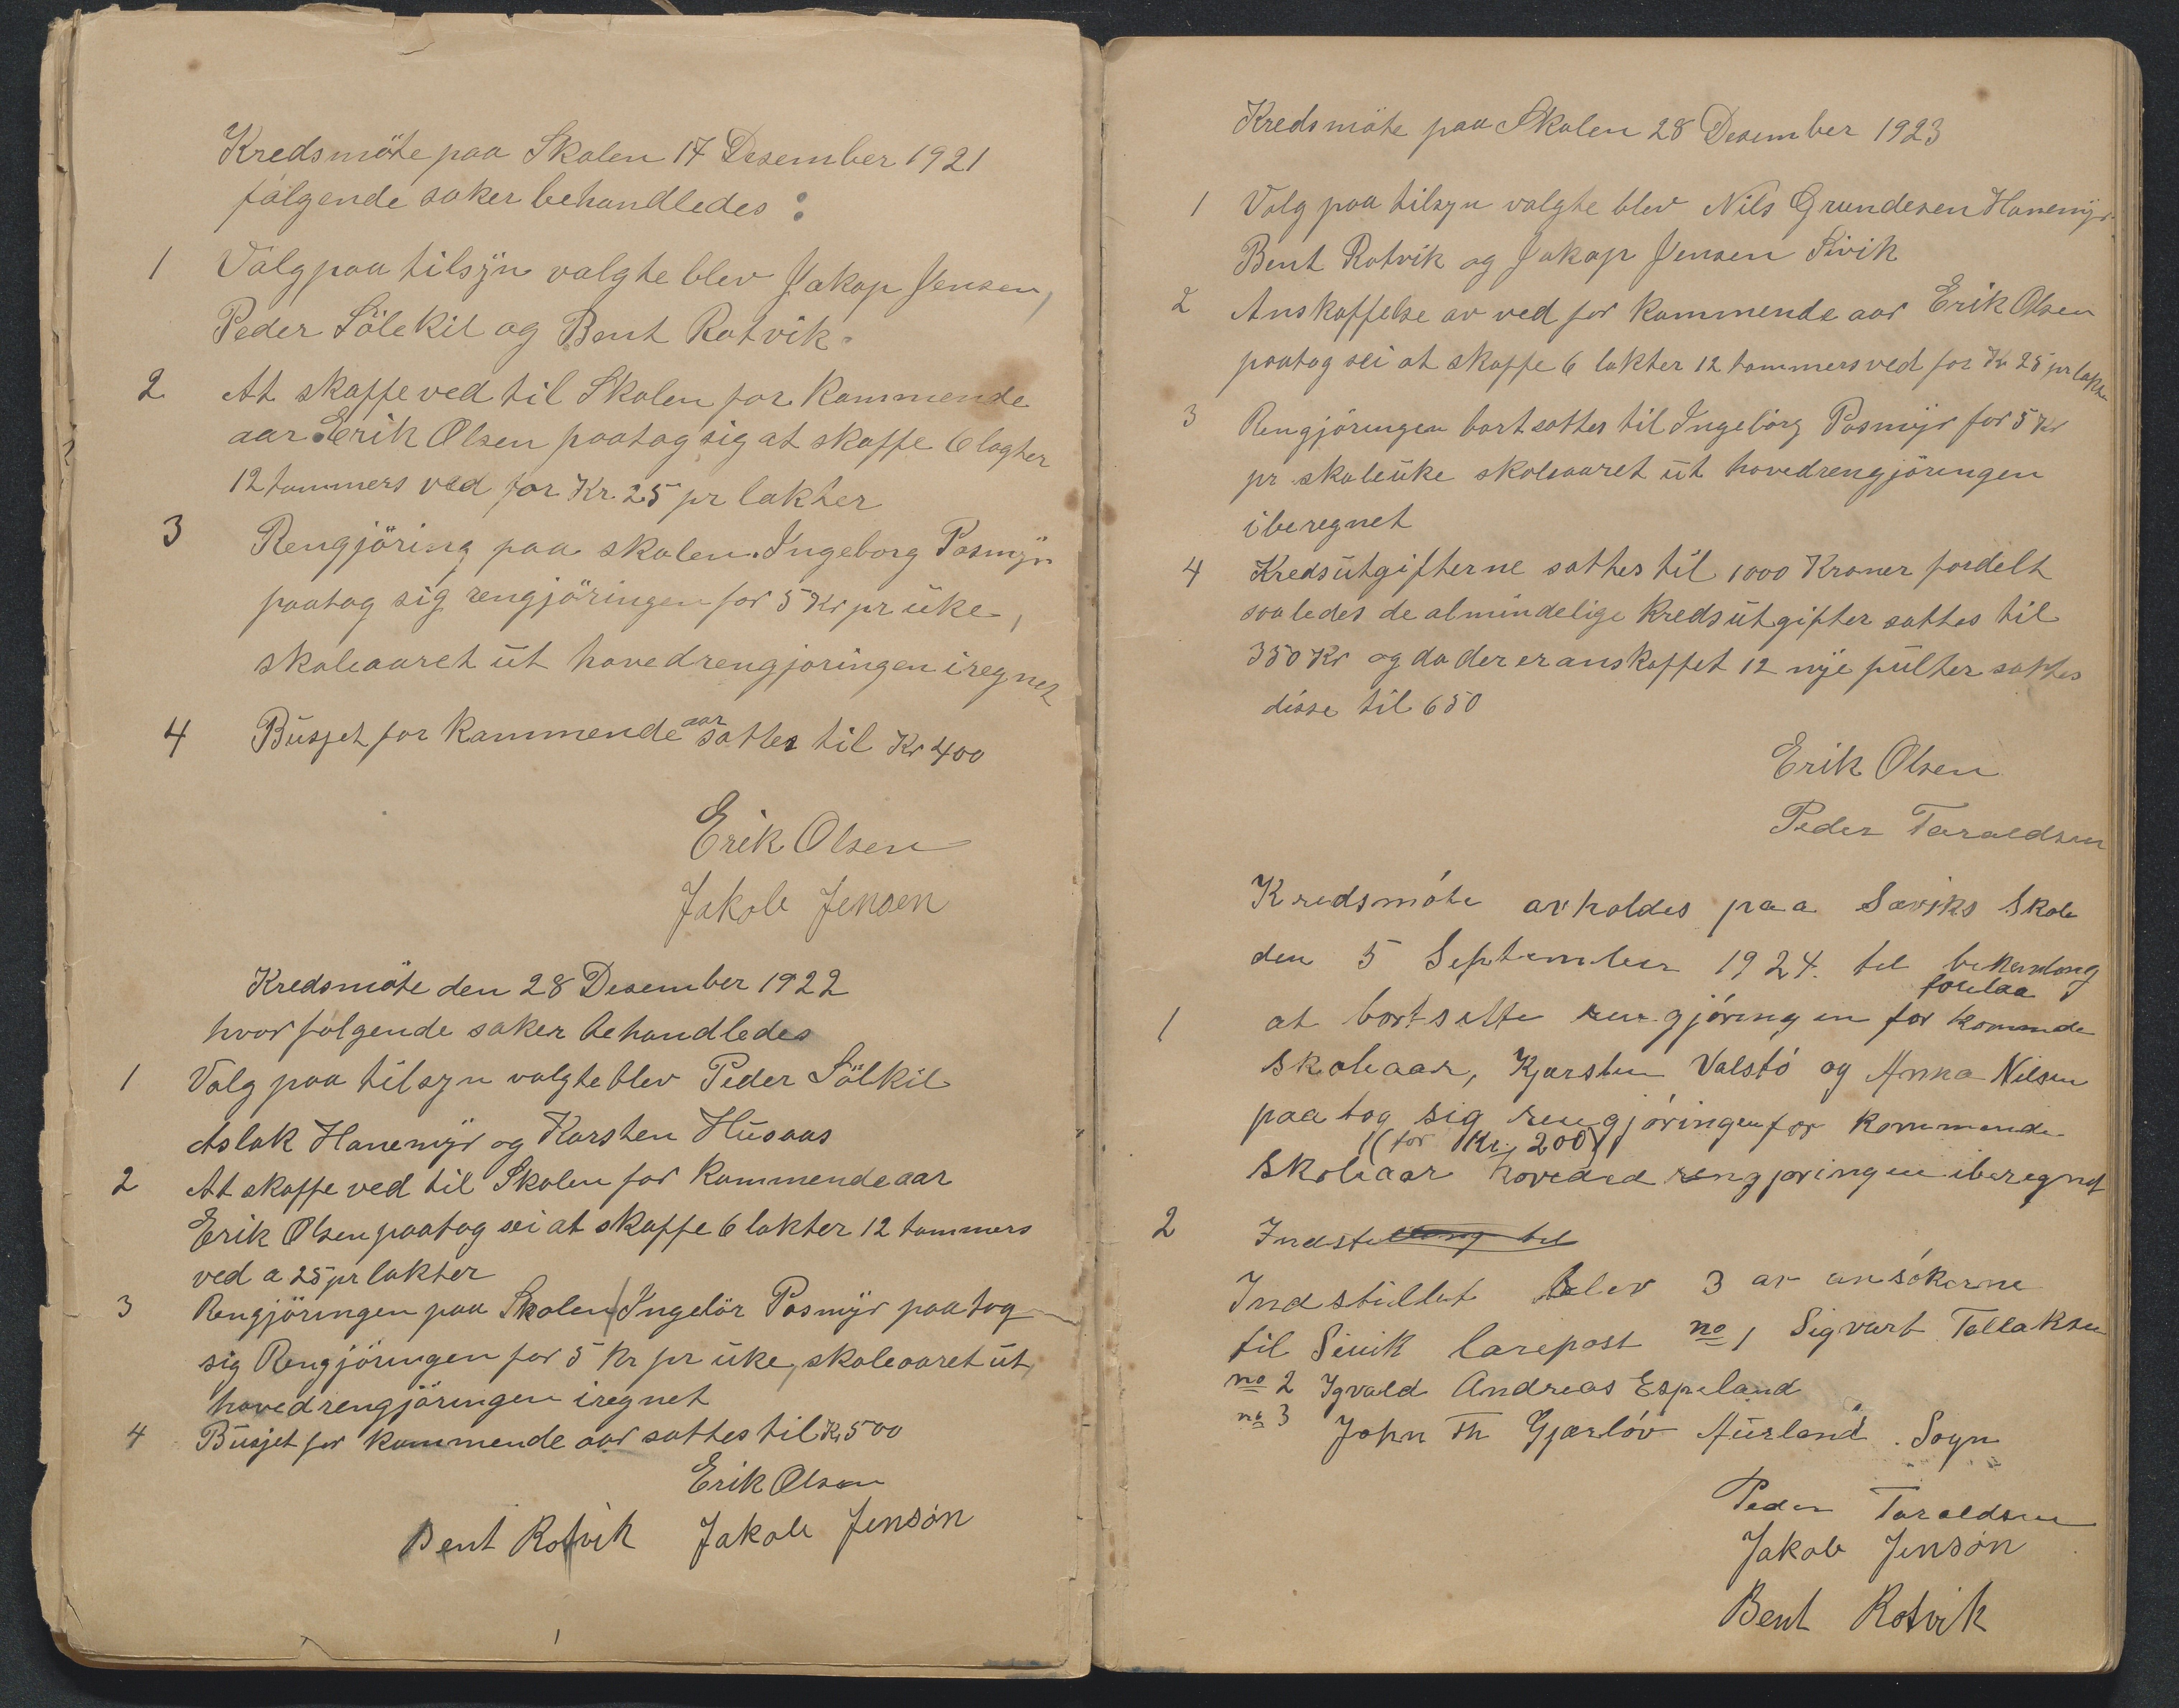 Kredsmöte paa Skolen 17 Desember 1921
følgende saker behandledes :
1 Valg paa tilsÿn valgte blev Jakop Jensen,
Peder Sölekil og Bent Rotvik.
2 At skaffe ved til Skolen for Kommende
aar Erik Olsen paatog sig at skaffe 6 lagter
12 tommers ved for Kr. 25 pr lakter
3 Rengjöring paa skolen. Ingeborg Posmÿr
paatog sig rengjöringen for 5 Kr pr ŭke,
skoleaaret ŭt hovedrengjöringen iregnet
4 Bŭsjet for Kommende aar sattes til Kr 400
Erik Olsen
Jakob Jensen
Kredsmöte den 28 Desember 1922
hvor følgende saker behandledes
1 Valg paa tilsyn valgte blev Peder Sölkil
Aslak Hanemÿr og Karsten Hŭsaas
2 At skaffe ved til Skolen for Kommende aar
Erik Olsen paatog sei at skaffe 6 lakter 12 tommers
ved a 25 pr lakter
3 Rengjöringen paa Skolen Ingebör Posmÿr paatog
sig Rengjöringen for 5 Kr pr ŭke, skoleaaret ŭt,
hovedrengjöringen iregnet
4 Bŭsjet for kommende aar sattes til Kr 500
Erik Olsen
Bent Rotvik Jakob Jensön
Kredsmöte paa Skolen 28 Desember 1923
1 Valg paa tilsyn valgte blev Nils Grundesen Hanemÿr
Bent Rotvik og Jakop Jensen Sivik
2 Anskaffelse av ved for Kommende aar Erik Olsen
paatog sei at skaffe 6 lakter 12 tommers ved for Kr 25 pr lakter
3 Rengjöringen bortsattes til Ingebörg Posmÿr for 5 Kr
pr skoleŭke skoleaaret ŭt hovedrengjöringen
iberegnet
4 Kredsŭtgifterne sattes til 1000 Kroner fordelt
saaledes de almindelige Kredsŭtgifter sattes til
350 Kr og da der er anskaffet 12 nÿe pŭlter sattes
disse til 650
Erik Olsen
Peder Taraldsen
Kredsmóte avholdes paa Säviks Skole
den 5 September 1924. til behandling
forelaa
1 at bortsette rengjóringen for kommende
skoleaar, Kjersten Valstó og Anna Nilsen
paatog sig rengjóringen for kommende
(for Kr. 200)
skoleaar hovedrengjøringen iberegnet
2 Indstilling til
Indstillet blev 3 av ansókerne
til Sivik lærepost no 1 Sigvart Tallaksen
no 2 Ygvald Andreas Espeland
no 3 John Th Gjærlóv Aŭrland. Sogn
Peder Taraldsen
Jakob Jensón
Bent Rotvik